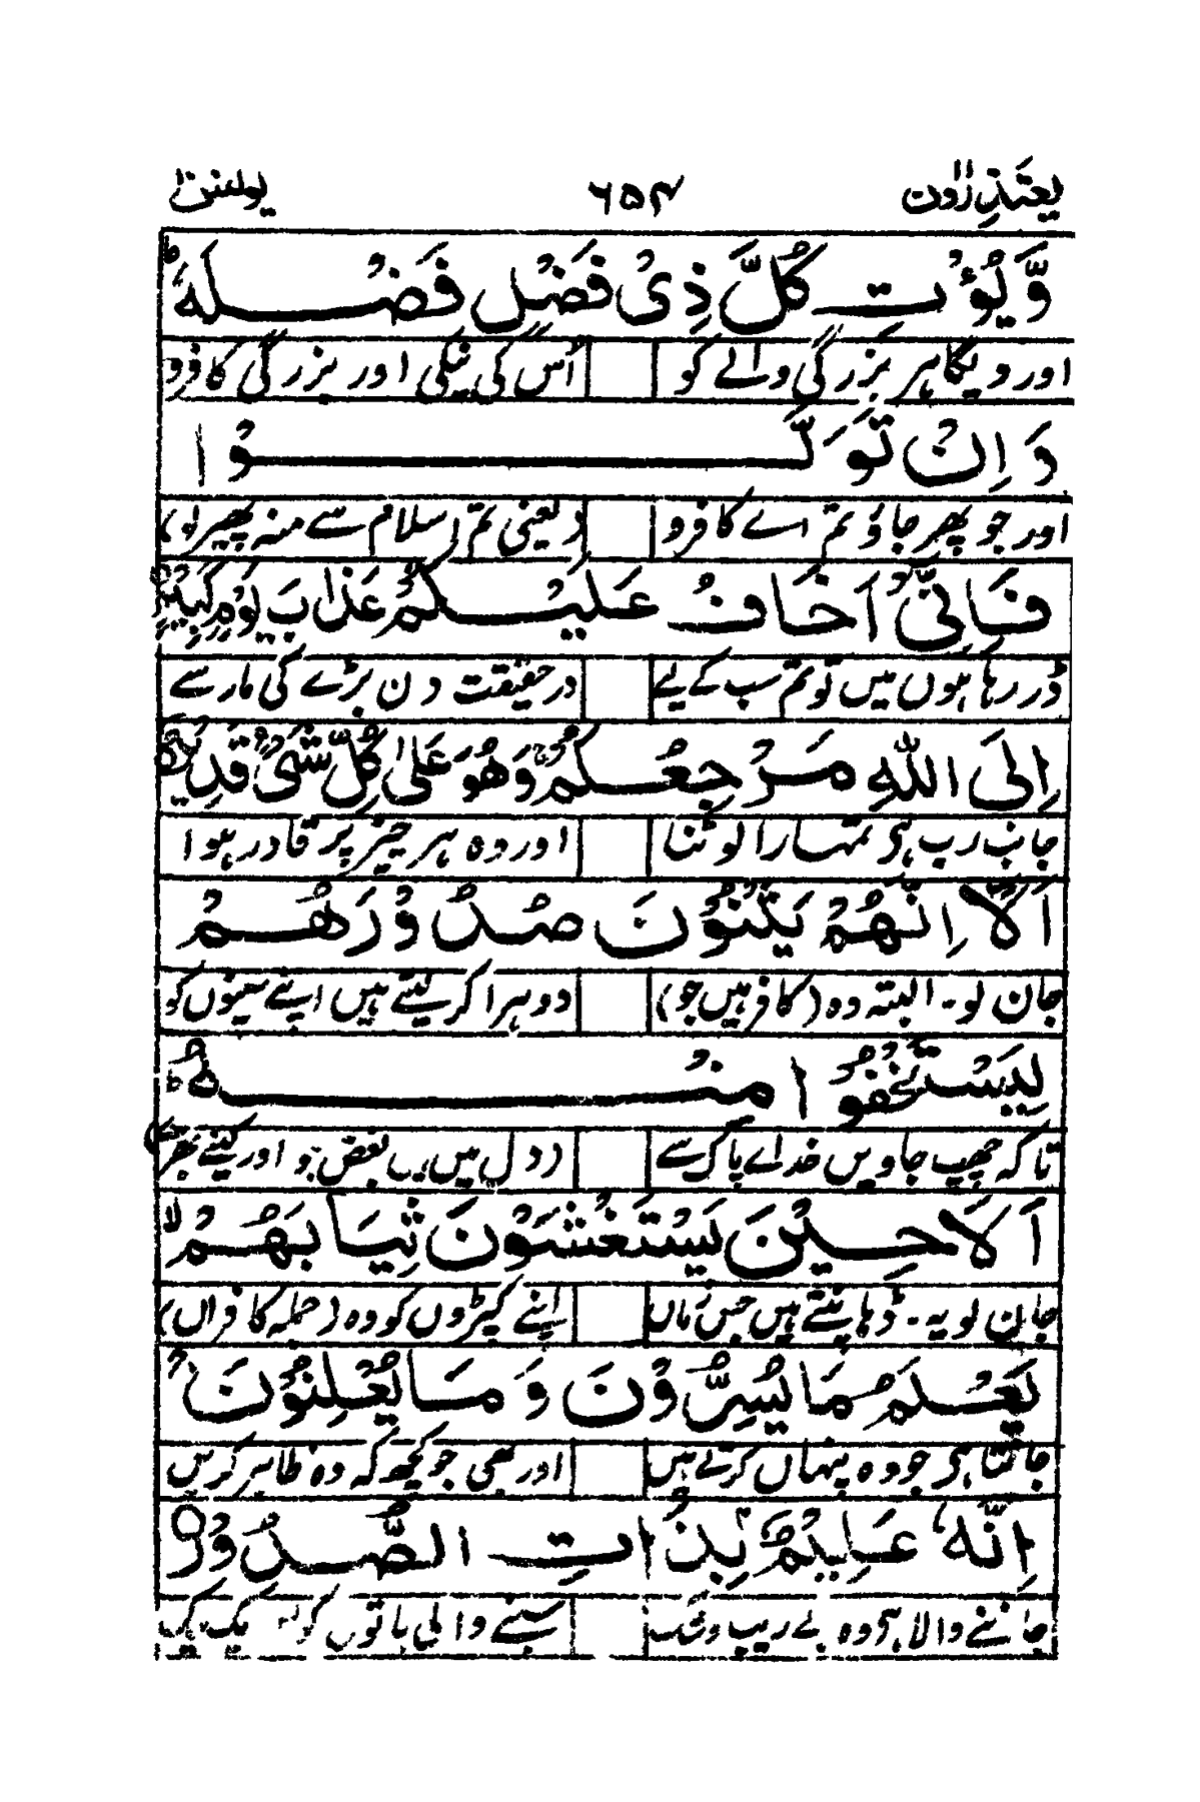 یعتذرون ۶۵۴ یونس
وَّیُؤْتِ کُلَّ ذِیْ فَضْلٍ فَضْلَهٗ ؕ
اور دیگا ہر بزرگی والے کو اُس کی نیکی اور بزرگی کا فرو
وَاِنْ تَوَلَّوْا
اور جو پھر جاؤ تم اے کافرو (یعنی تم اسلام سے منہ پھیر لو)
فَاِنِّیْٓ اَخَافُ عَلَیْکُمْ عَذَابَ یَوْمٍ کَبِیْرٍ
ڈر رہا ہوں میں تو تم سب کے لیے در حقیقت دن بڑے کی مار سے
اِلَی اللّٰهِ مَرْجِعُکُمْ ۚ وَهُوَ عَلٰی کُلِّ شَیْءٍ قَدِیْرٌ
جانب رب ہی تمہارا لوٹنا اور وہ ہر چیز پر قادر ہوا
اَلَآ اِنَّهُمْ یَثْنُوْنَ صُدُوْرَهُمْ
جان لو۔ البتہ وہ (کافر ہیں جو) دوہرا کر لیتے ہیں اپنے سینوں کو
لِیَسْتَخْفُوْا مِنْهُ ؕ
تاکہ چھپ جاویں خداے پاک سے (دل میں بغض اور کینے بھر
اَلَا حِیْنَ یَسْتَغْشَوْنَ ثِیَابَهُمْ ۙ
جان لو یہ۔ ڈھانپتے ہیں جس زماں اپنے کپڑوں کو وہ (جملہ کافراں)
یَعْلَمُ مَا یُسِرُّوْنَ وَمَا یُعْلِنُوْنَ ۚ
جانتا ہی جو وہ پنہاں کرتے ہیں اور بھی جو کچھ کہ وہ ظاہر کریں
اِنَّهٗ عَلِیْمٌۢ بِذَاتِ الصُّدُوْرِ
جاننے والا ہی وہ بے ریب وشک سینے والی باتوں کو یک یک